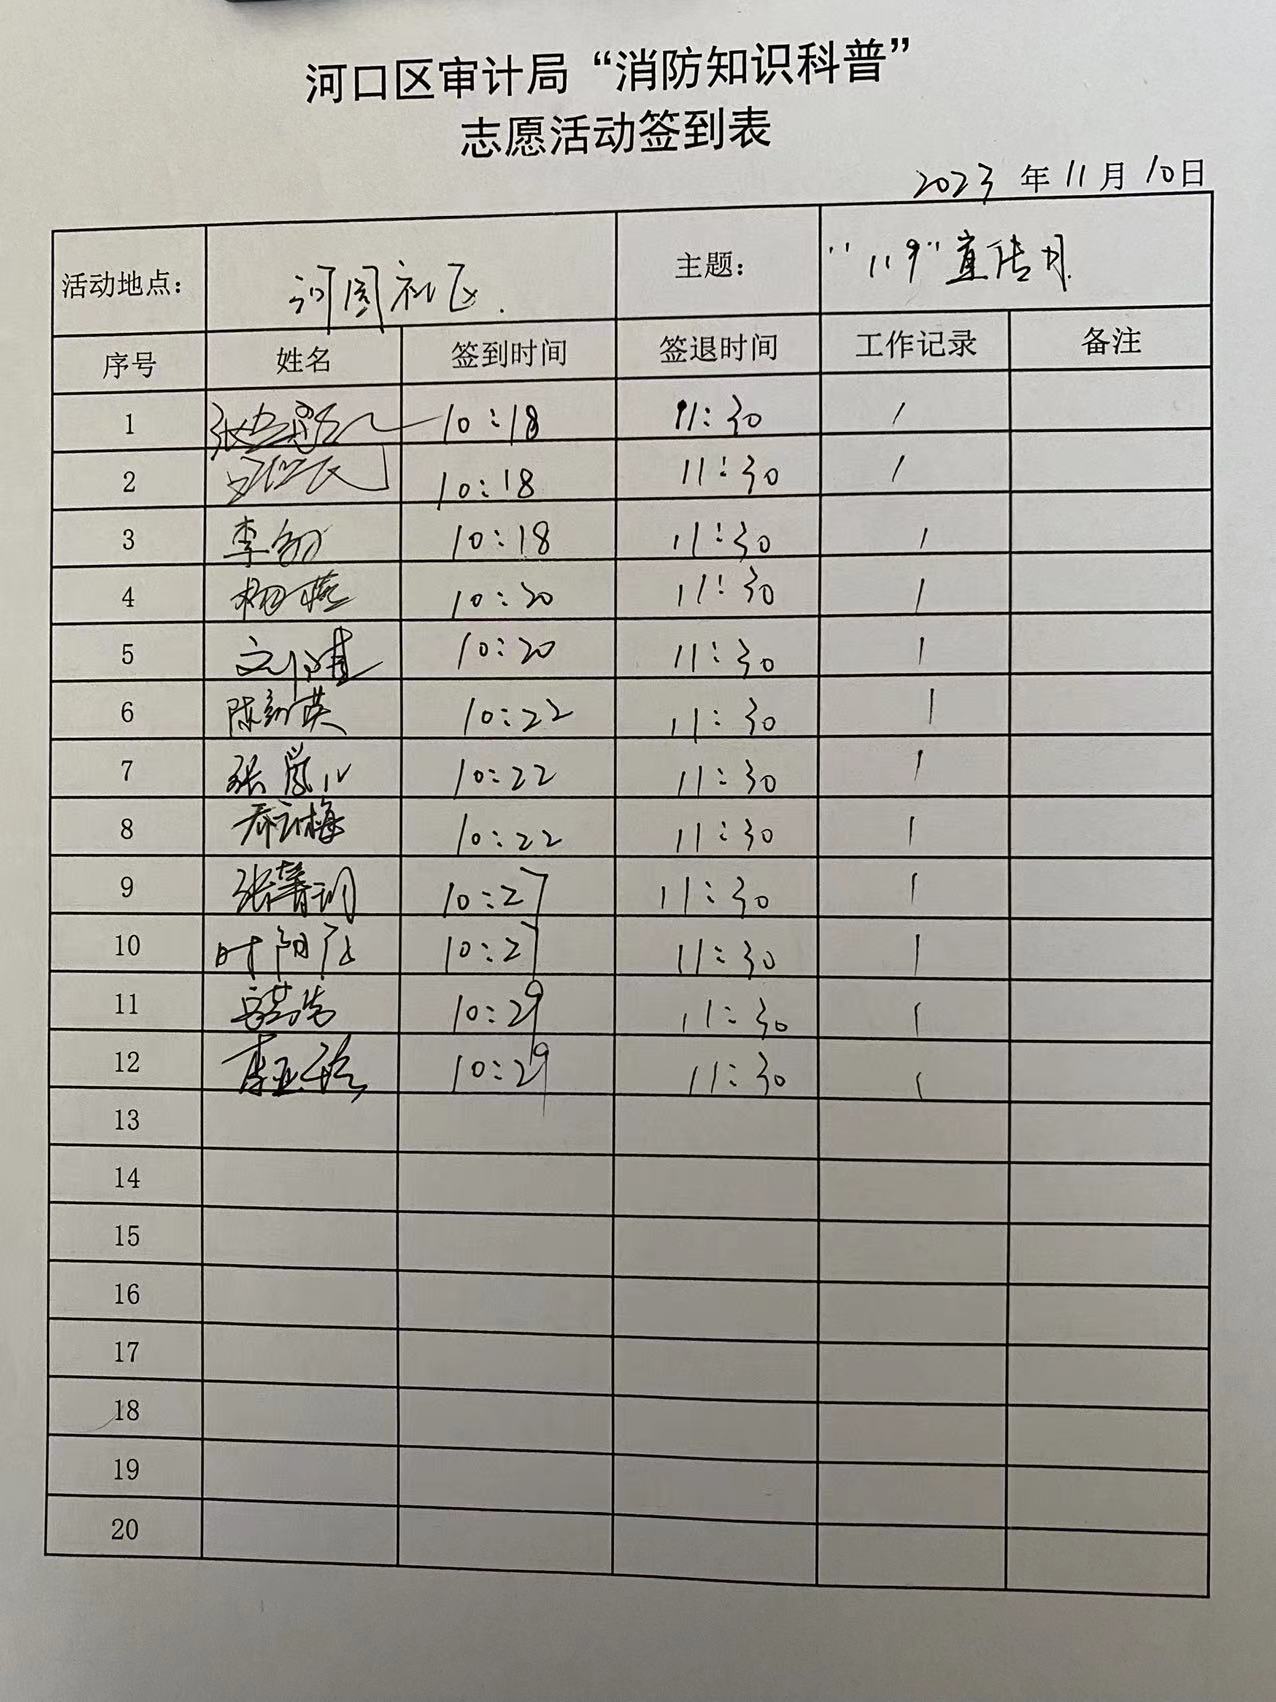 河口区审计局“消防知识科普”
志愿活动签到表
2023 年 11 月 10 日
活动地点： 河园社区. 主题： “119”宣传月
序号 姓名 签到时间 签退时间 工作记录 备注
1 10:18 11:30 1
2 10:18 11:30 1
3 李 10:18 11:30 1
4 杨 10:20 11:30 1
5 10:20 11:30 1
6 陈 英 10:22 11:30 1
7 张 10:22 11:30 1
8 乔 梅 10:22 11:30 1
9 张馨 10:27 11:30 1
10 时阳 10:27 11:30 1
11 10:29 11:30 1
12 李亚 10:29 11:30 1
13
14
15
16
17
18
19
20